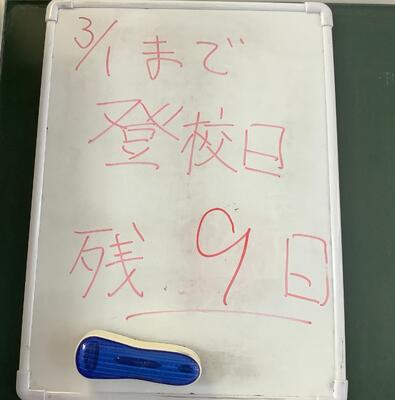 3/1まで
登校日
残 9日